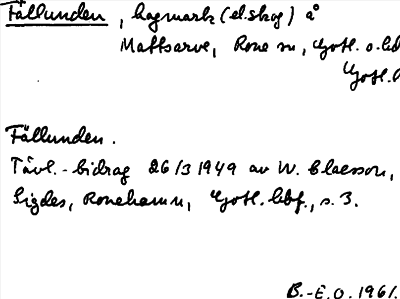 Fällunden, hagmark (el. skog) å
Mattsarve, Rone sn, Gotl. o. bd
Gotl.
Fällunden.
Tävl.-bidrag 26/3 1949 av W. Claesson,
Sigdes, Ronehamn, Gotl. lbf., s. 3.
B.-E.O. 1961.